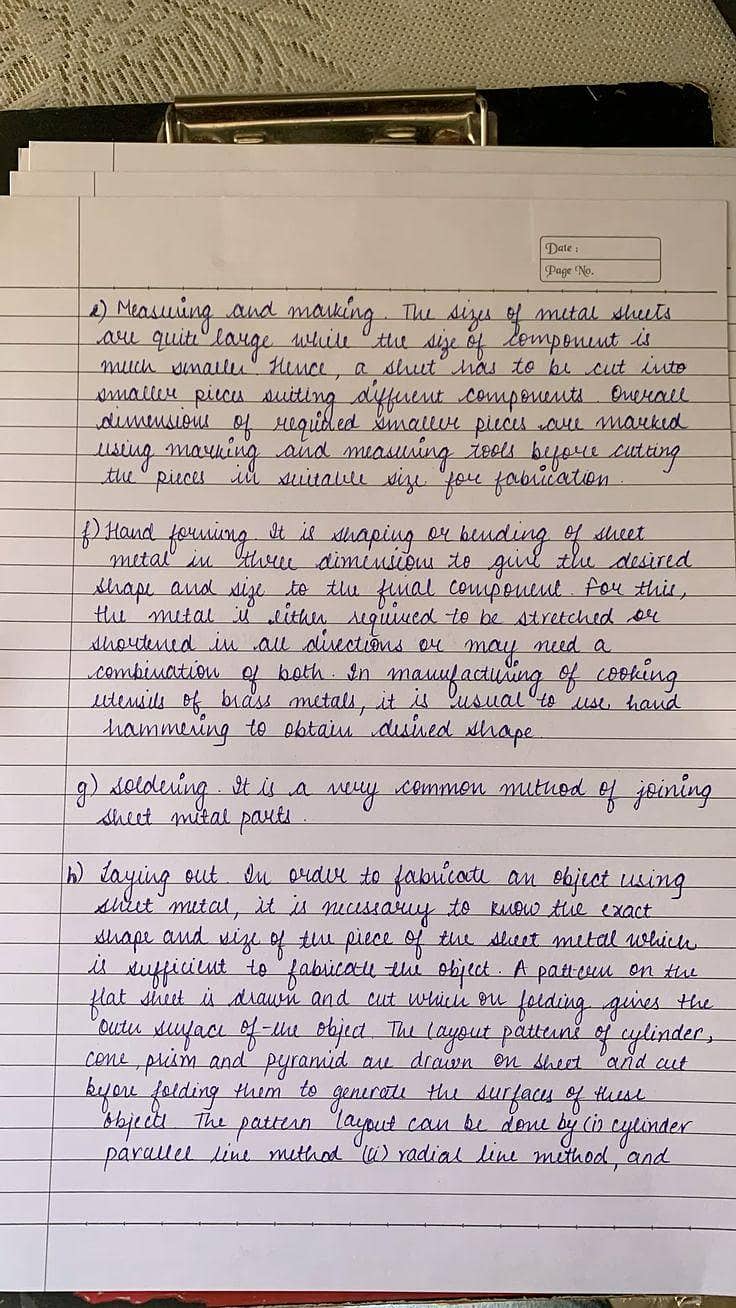 Date :
Page No.
e) Measuring and marking. The sizes of metal sheets
are quite large while the size of component is
much smaller. Hence, a sheet has to be cut into
smaller pieces suiting different components. Overall
dimensions of required smaller pieces are marked
using marking and measuring tools before cutting
the pieces in suitable size for fabrication.
f) Hand forming. It is shaping or bending of sheet
metal in three dimensions to give the desired
shape and size to the final component. For this,
the metal is either required to be stretched or
shortened in all directions or may need a
combination of both. In manufacturing of cooking
utensils of brass metals, it is usual to use hand
hammering to obtain desired shape
g) Soldering. It is a very common method of joining
sheet metal parts.
h) Laying out. In order to fabricate an object using
sheet metal, it is necessary to know the exact
shape and size of the piece of the sheet metal which
is sufficient to fabricate the object. A pattern on the
flat sheet is drawn and cut which on folding gives the
outer surface of the object. The layout patterns of cylinder,
cone, prism and pyramid are drawn on sheet and cut
before folding them to generate the surfaces of these
objects. The pattern layout can be done by (i) cylinder
parallel line method (ii) radial line method, and